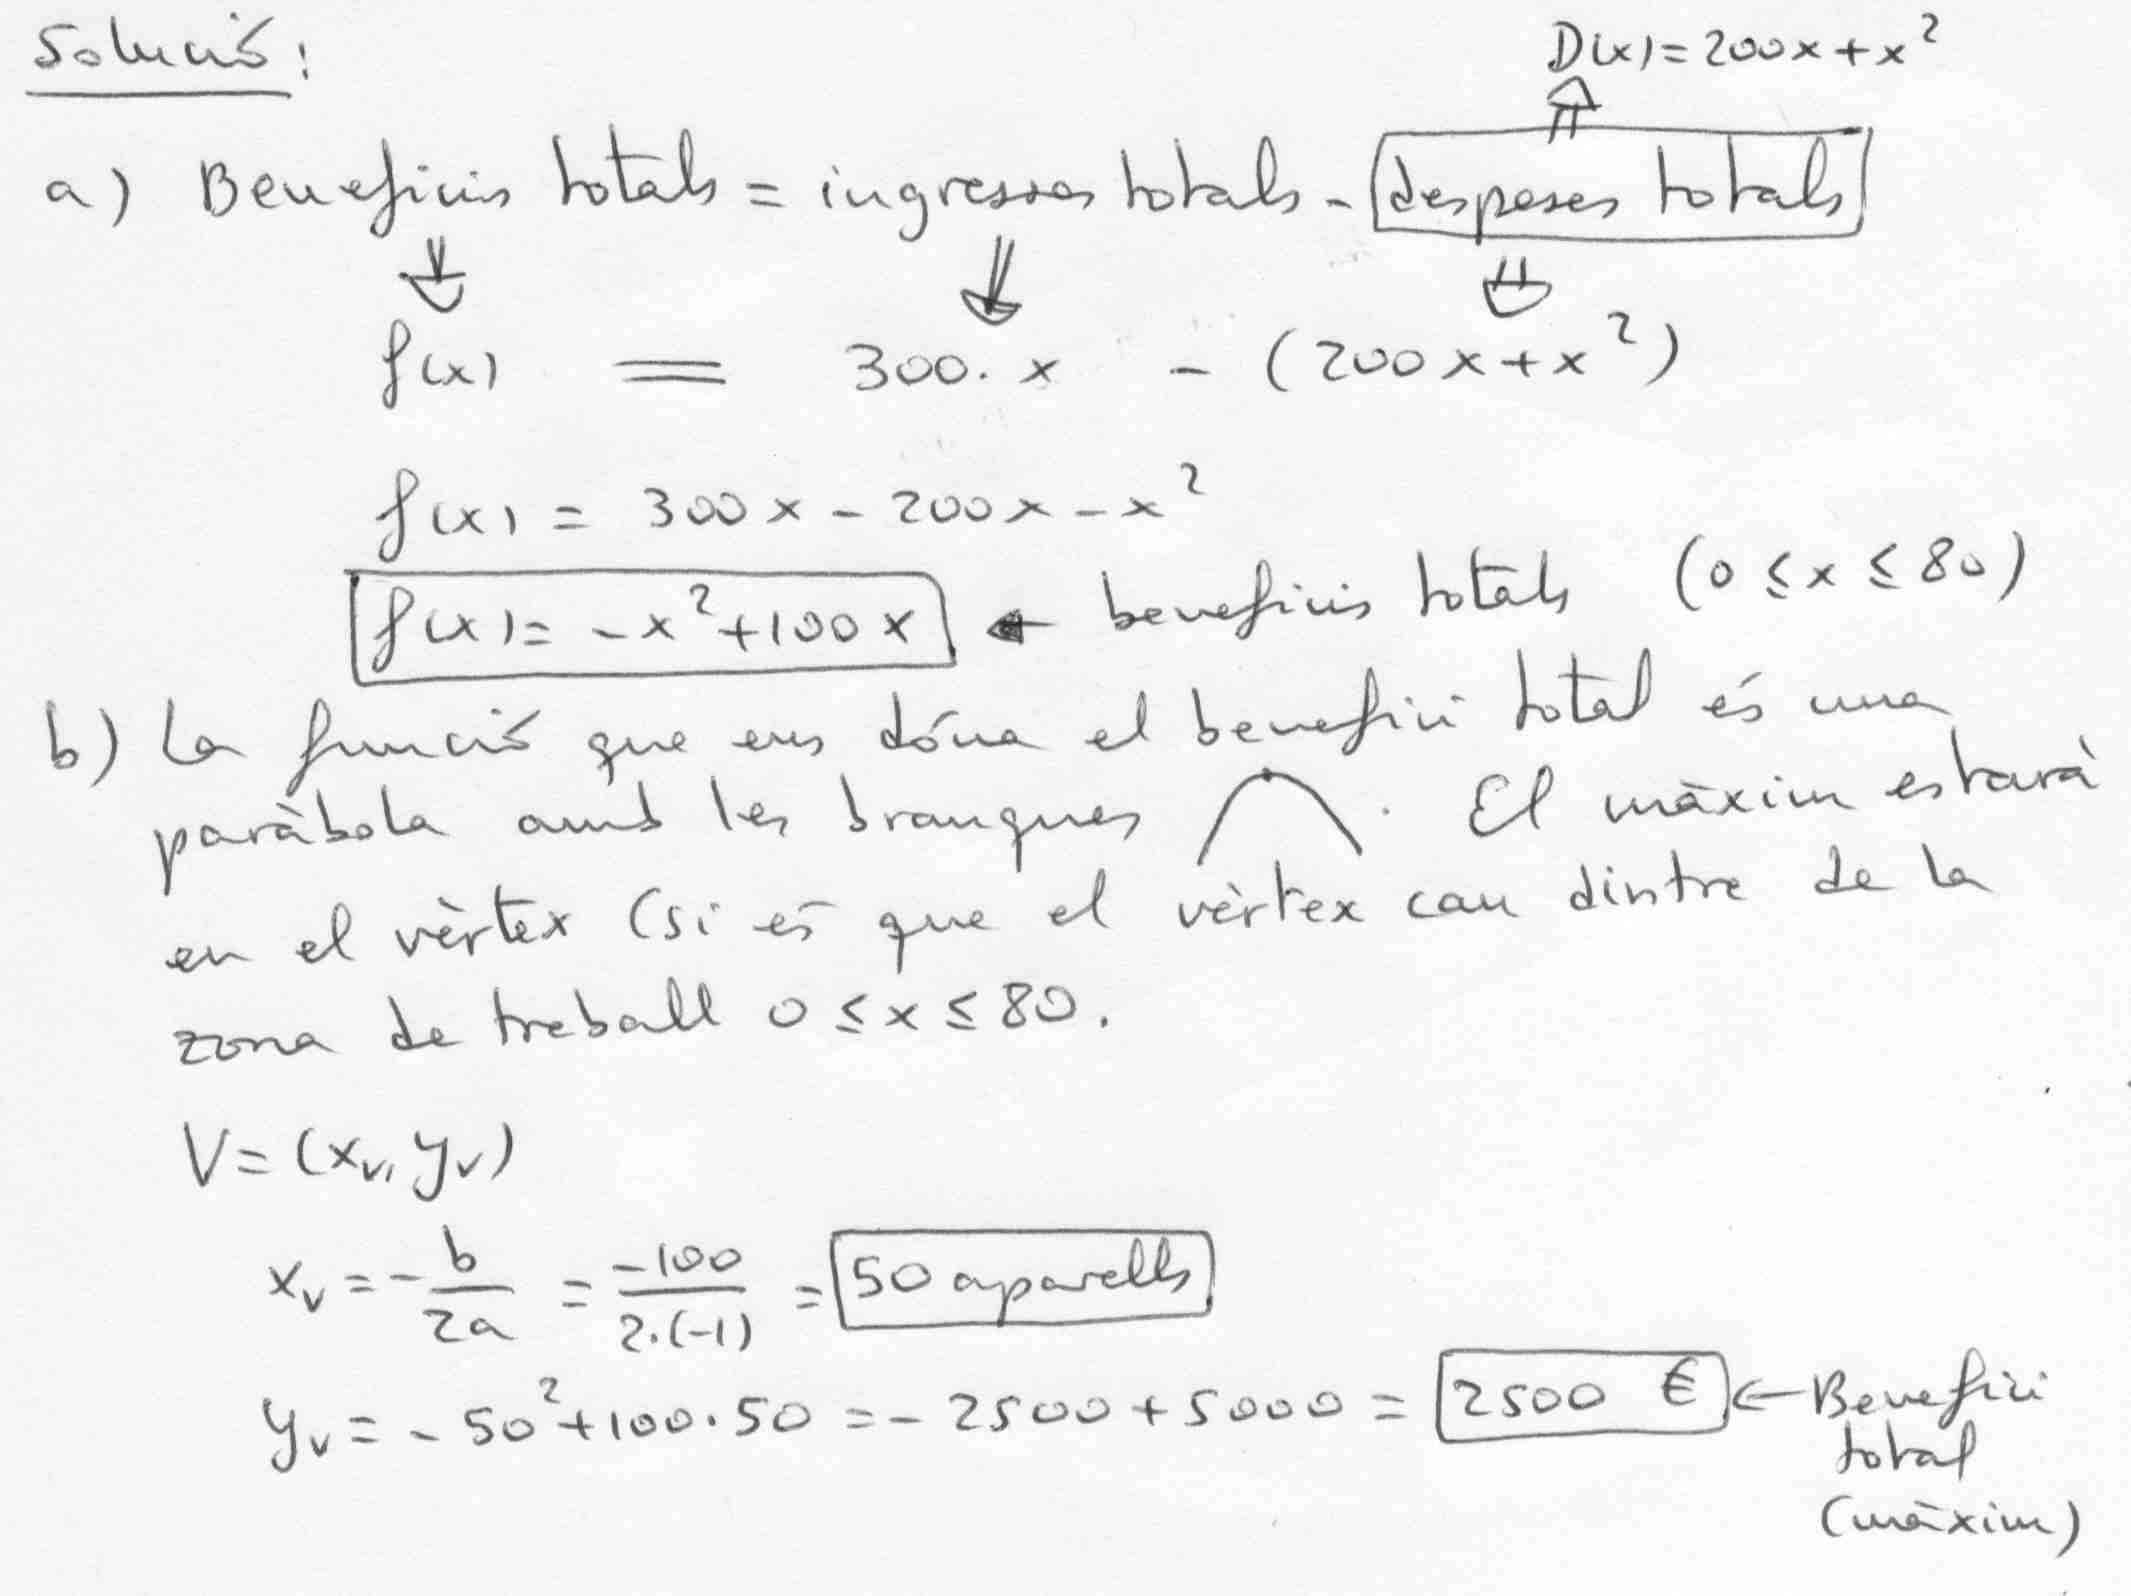 Solució:
D(x) = 200x + x²
a) Beneficis totals = ingressos totals - despeses totals
f(x) = 300·x - (200x + x²)
f(x) = 300x - 200x - x²
f(x) = -x² + 100x ← beneficis totals (0 ≤ x ≤ 80)
b) La funció que ens dóna el benefici total és una
paràbola amb les branques . El màxim estarà
en el vèrtex (si és que el vèrtex cau dintre de la
zona de treball 0 ≤ x ≤ 80.
V = (xᵥ, yᵥ)
xᵥ = -b/2a = -100/2·(-1) = 50 aparells
yᵥ = -50² + 100·50 = -2500 + 5000 = 2500 € ← Benefici
total
(màxim)